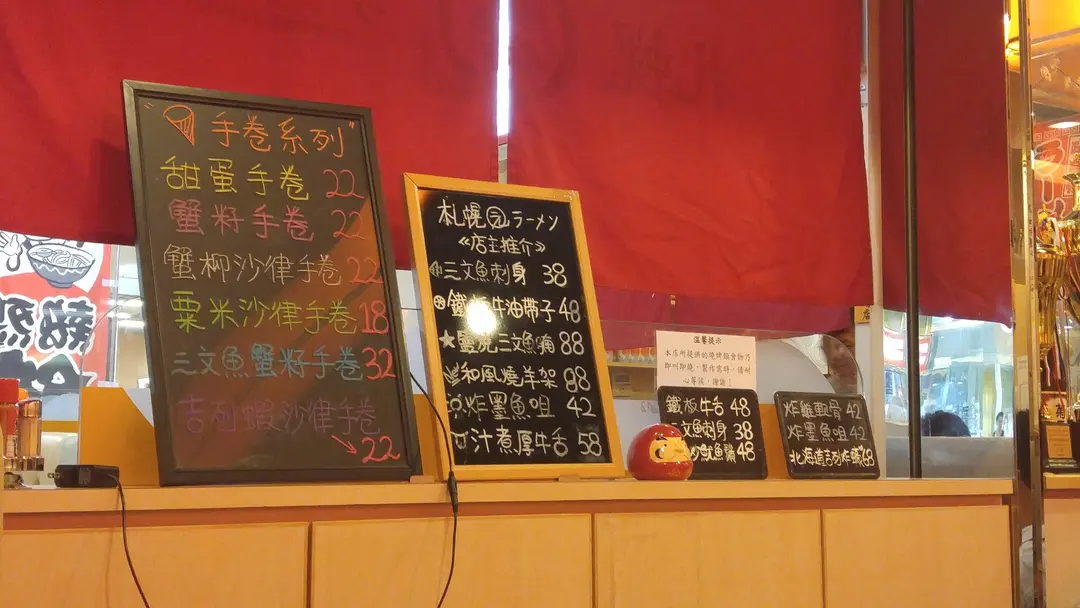 "手卷系列"
甜蛋手卷 22
蟹籽手卷 22
蟹柳沙律手卷 22
粟米沙律手卷 18
三文魚蟹籽手卷 32
吉列蝦沙律手卷
22
札幌 ラーメン
《店主推介》
三文魚刺身 38
鐵板牛油帶子 48
★鹽燒三文魚腩 88
和風燒羊架 88
炸墨魚咀 42
汁煮厚牛舌 58
溫馨提示
本店所提供的燒烤類食物乃
即叫即燒，製作需時，請耐
心等候，謝謝！
鐵板牛舌 48
三文魚刺身 38
魷魚鬚 48
炸雞軟骨 42
炸墨魚咀 42
北海道吉列炸蠔 68